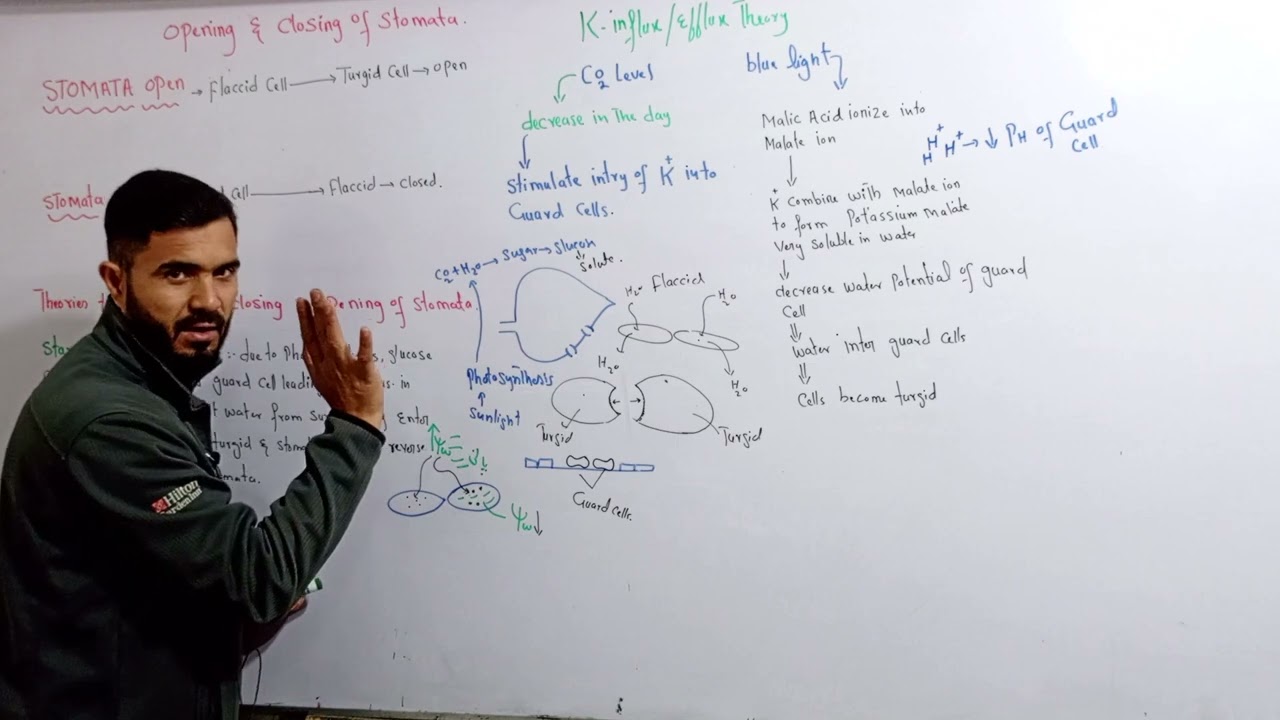 Opening & Closing of Stomata.
STOMATA Open → Flaccid Cell → Turgid Cell → open
Stomata cell → Flaccid → closed.
Theories closing pening of Stomata.
:- due to Pho s, glucose
guard cell leadin s. in
t water from su Enter
turgid & stoma reverse
mata.
Hilton
Garden Inn
K-influx/Efflux Theory
CO2 Level
decrease in The day
Stimulate intry of K+ into
Guard Cells.
CO2+H2O → Sugar → Glucon
Solute.
Photosynthesis
Sunlight
H2O Flaccid H2O
H2O H2O
Turgid Turgid
Guard cells.
Ψw
Ψw↓
blue light
Malic Acid ionize into
Malate ion
K+ Combine with Malate ion
to form Potassium Malate
Very soluble in water
decrease water Potential of guard
Cell
Water inter guard cells
Cells become turgid
H+ H H+ → ↓ PH of Guard
Cell